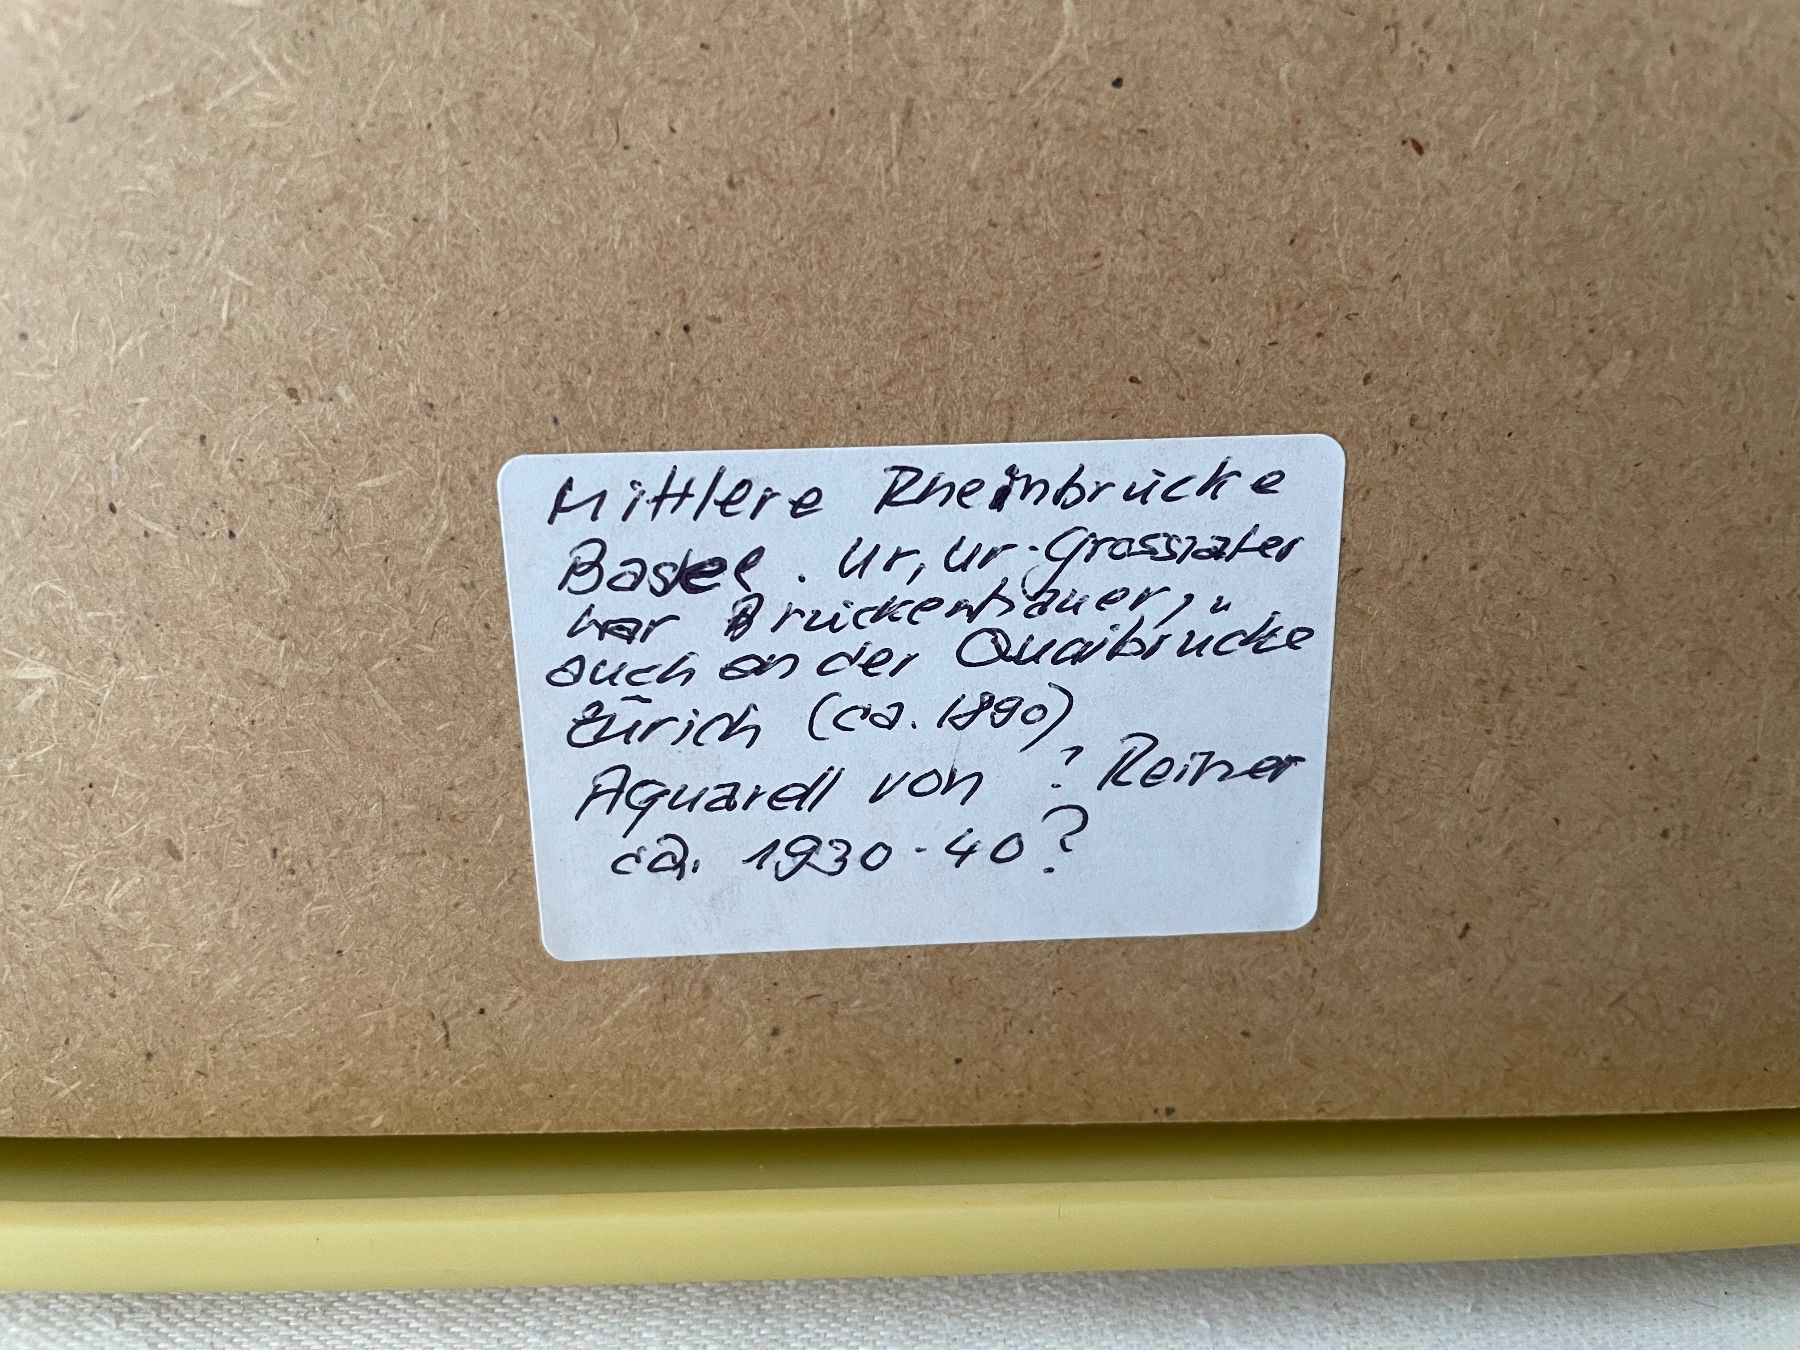 Mittlere Rheinbrücke
Basel. Ur, Ur-Grossvater
war Brückenbauer,
auch an der Quaibrücke
Zürich (ca. 1890)
Aquarell von ? Reiner
ca. 1930-40?